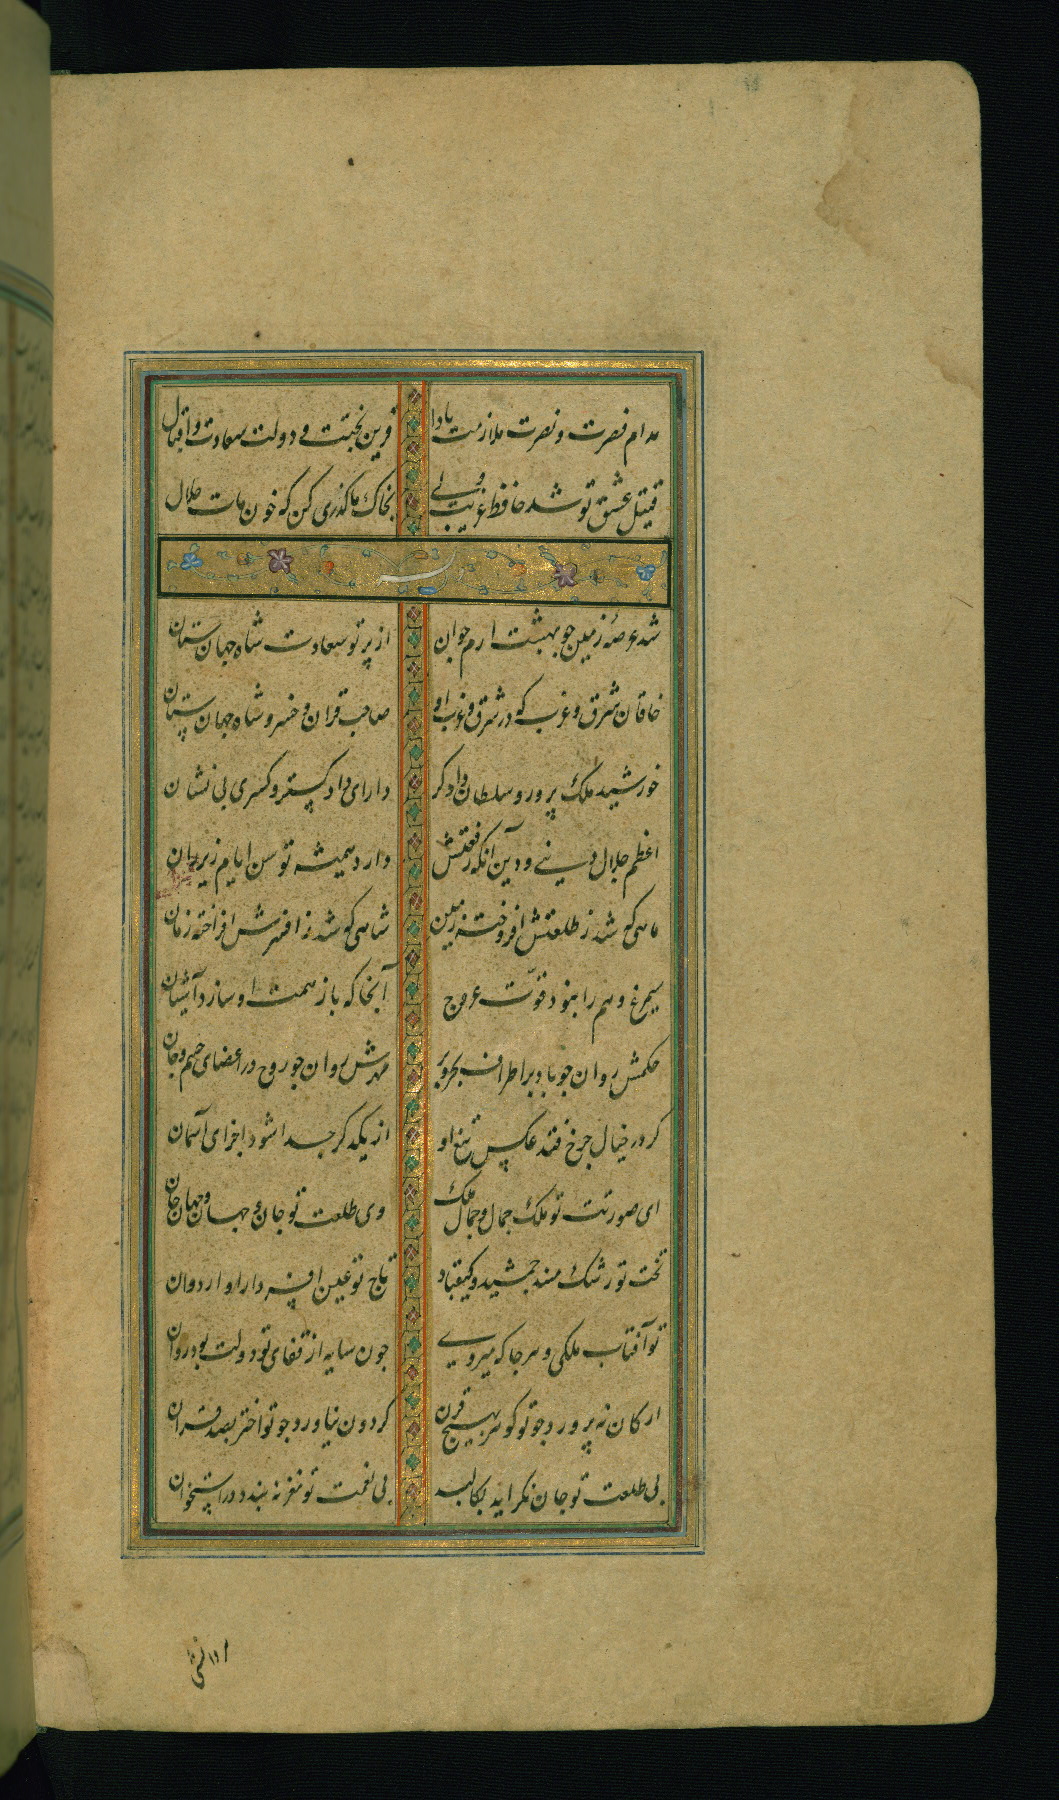 مدام فصرت و نصرت ملازمت بادا قرین بختت و دولت سعادت و اقبال
قتیل عشق تو شد حافظ غریب ولی بخاک ما گذری کن که خون مات حلال
وله
شد عرصه زمین جو بهشت ارم جوان از پرتو سعادت شاه جهان ستان
خاقان شرق و غرب که در شرق و غرب او صاحب قران و خسرو شاه جهان ستان
خورشید ملک پرور و سلطان دادکر دارای دادکستر و کسری بی نشان
اعظم جلال دنیی و دین آنکه رفعتش دارد همیشه توسن ایام زیر ران
ماهی که شد ز طلعتش افروخته زمین شاهی که شد ز افسرش افراخته زمان
سیمرغ وهم را بنود قوّت عروج آنجا که باز همت او سازد آشیان
حکمش روان جو باد بر اطراف بحر و بر مهرش روان جو روح در اعضای جسم و جان
کر در خیال جرخ فتد عکس تیغ او از یکدکر جدا شود اجزای آسمان
ای صورتت تو ملک جمال و جمال ملک وی طلعت تو جان و جهان و جهان جان
تخت تو رشک مسند جمشید و کیقباد تاج تو غبن افسر دارا و اردوان
تو آفتاب ملکی و هر جا که میروی جون سایه از قفای تو دولت بود روان
ارکان نه پرورد جو تو کوهر بهیچ قرن کردون نیاورد جو تو اختر بصد قران
بی طلعت تو جان نکراید بکالبد بی نعمت تو مغز نه بندد در استخوان